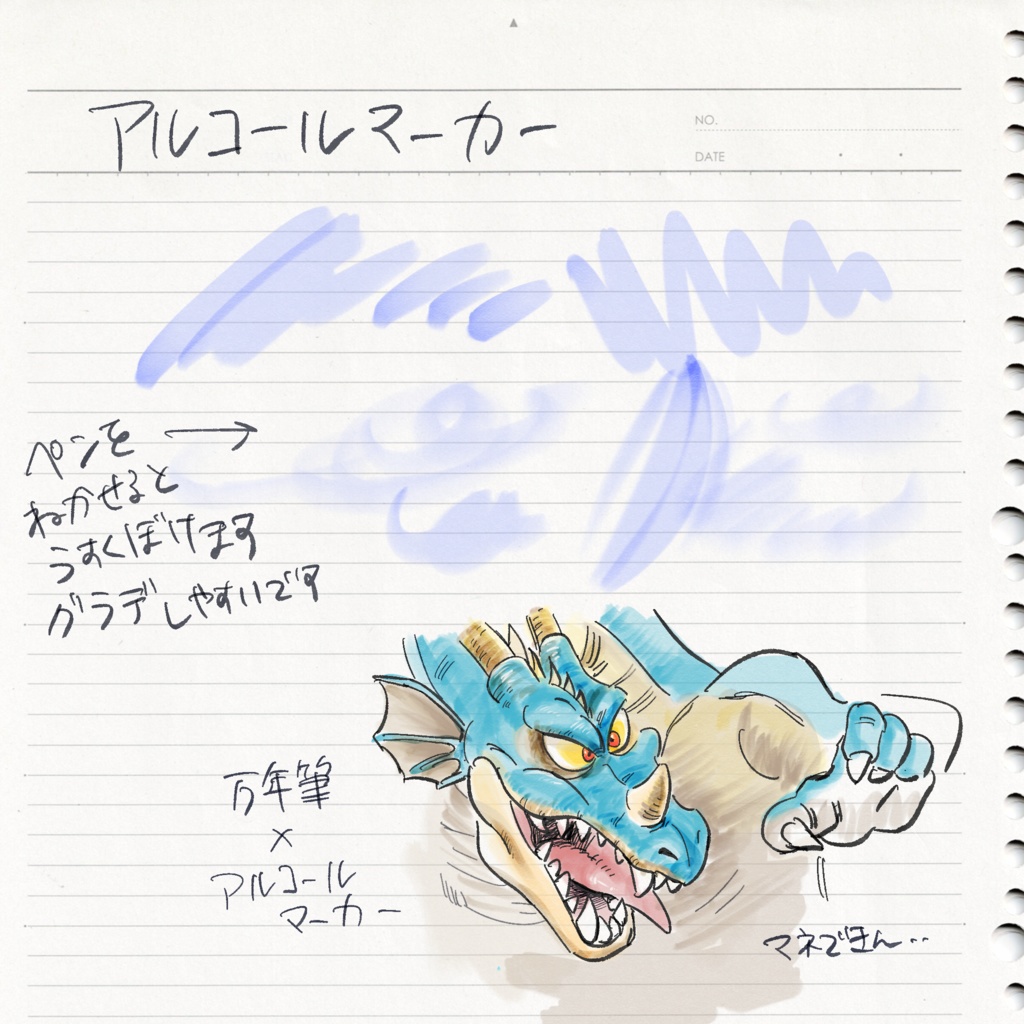 アルコールマーカー
NO.
DATE
ペンを
ねかせると
うすくぼけます
グラデしやすいです
万年筆
×
アルコール
マーカー
マネできん‥